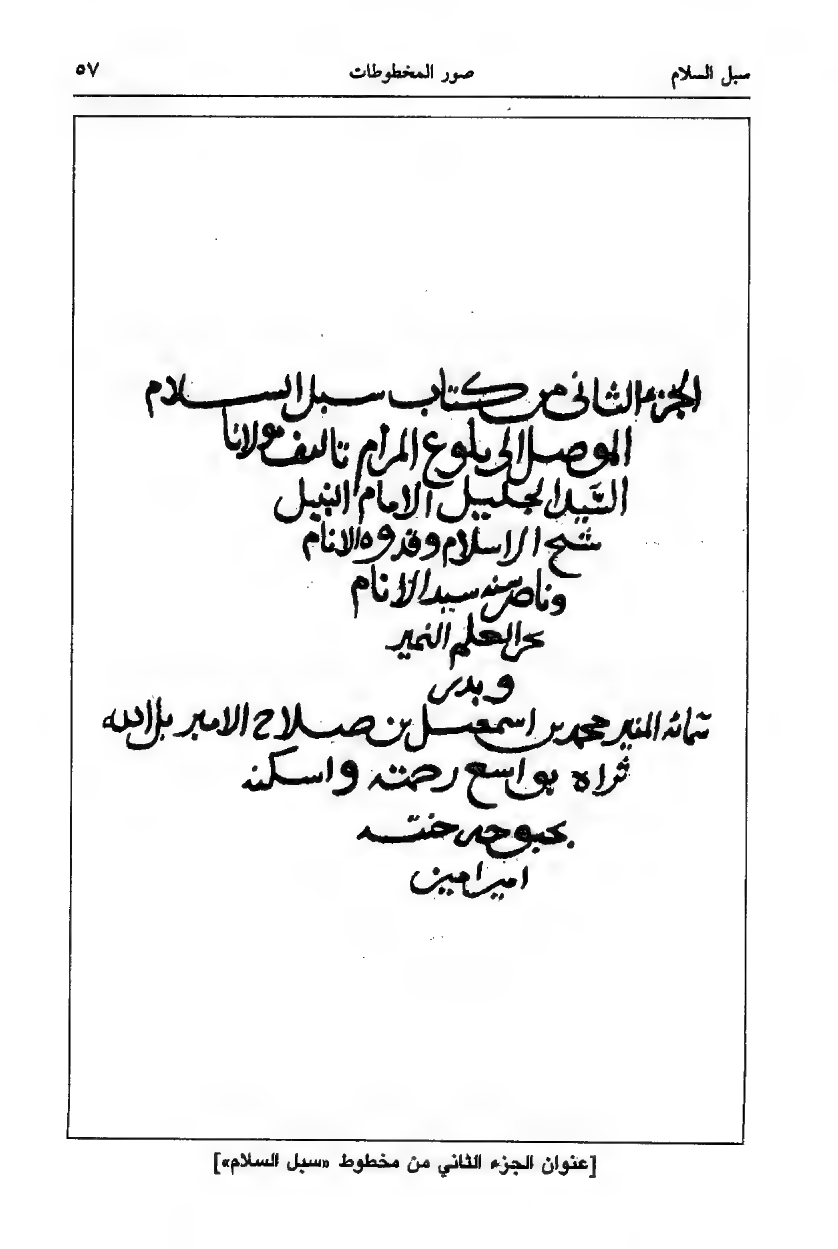 سبل السلام صور المخطوطات ٥٧
الجزء الثاني من كتاب سبل السلام
الموصل الى بلوغ المرام تاليف مولانا
السيد الجليل الامام النبيل
شيخ الاسلام وقدوه الانام
وناصر سنه سيد الانام
بحر العلم النمير
وبدر
سمائه المنير محمد بن اسمعيل بن صلاح الامير بل الله
ثراه بواسع رحمته واسكنه
بحبوحه جنته
امين امين
[عنوان الجزء الثاني من مخطوط «سبل السلام»]